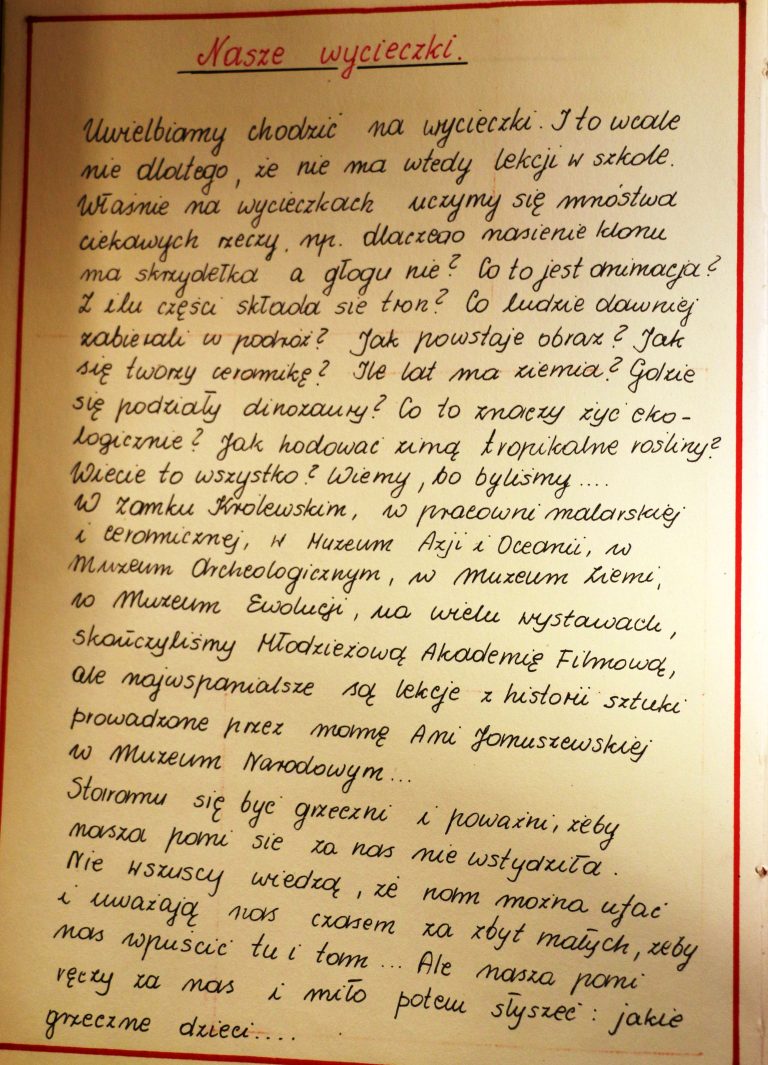 Nasze wycieczki.
Uwielbiamy chodzić na wycieczki. I to wcale
nie dlatego, że nie ma wtedy lekcji w szkole.
Właśnie na wycieczkach uczymy się mnóstwa
ciekawych rzeczy, np. dlaczego nasienie klonu
ma skrzydełka a głogu nie? Co to jest animacja?
Z ilu części składa sie tron? Co ludzie dawniej
zabierali w podróż? Jak powstaje obraz? Jak
się tworzy ceramikę? Ile lat ma ziemia? Gdzie
się podziały dinozaury? Co to znaczy żyć eko-
logicznie? Jak hodować zimą tropikalne rośliny?
Wiecie to wszystko? Wiemy, bo byliśmy....
W Zamku Królewskim, w pracowni malarskiej
i ceramicznej, w Muzeum Azji i Oceanii, w
Muzeum Archeologicznym, w Muzeum Ziemi,
w Muzeum Ewolucji, na wielu wystawach,
skończyliśmy Młodzieżową Akademię Filmową,
ale najwspanialsze są lekcje z historii sztuki
prowadzone przez mamę Ani Januszewskiej
w Muzeum Narodowym...
Staramy się być grzeczni i poważni, żeby
nasza pani sie za nas nie wstydziła.
Nie wszyscy wiedzą, że nam można ufać
i uważają nas czasem za zbyt małych, żeby
nas wpuścić tu i tam... Ale nasza pani
ręczy za nas i miło potem słyszeć: jakie
grzeczne dzieci....